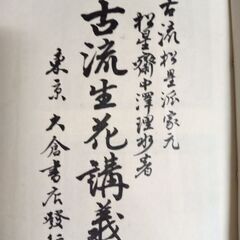 古流松星派家元
松星齋中澤理水著
古流生花講義
東京 大倉書店發行